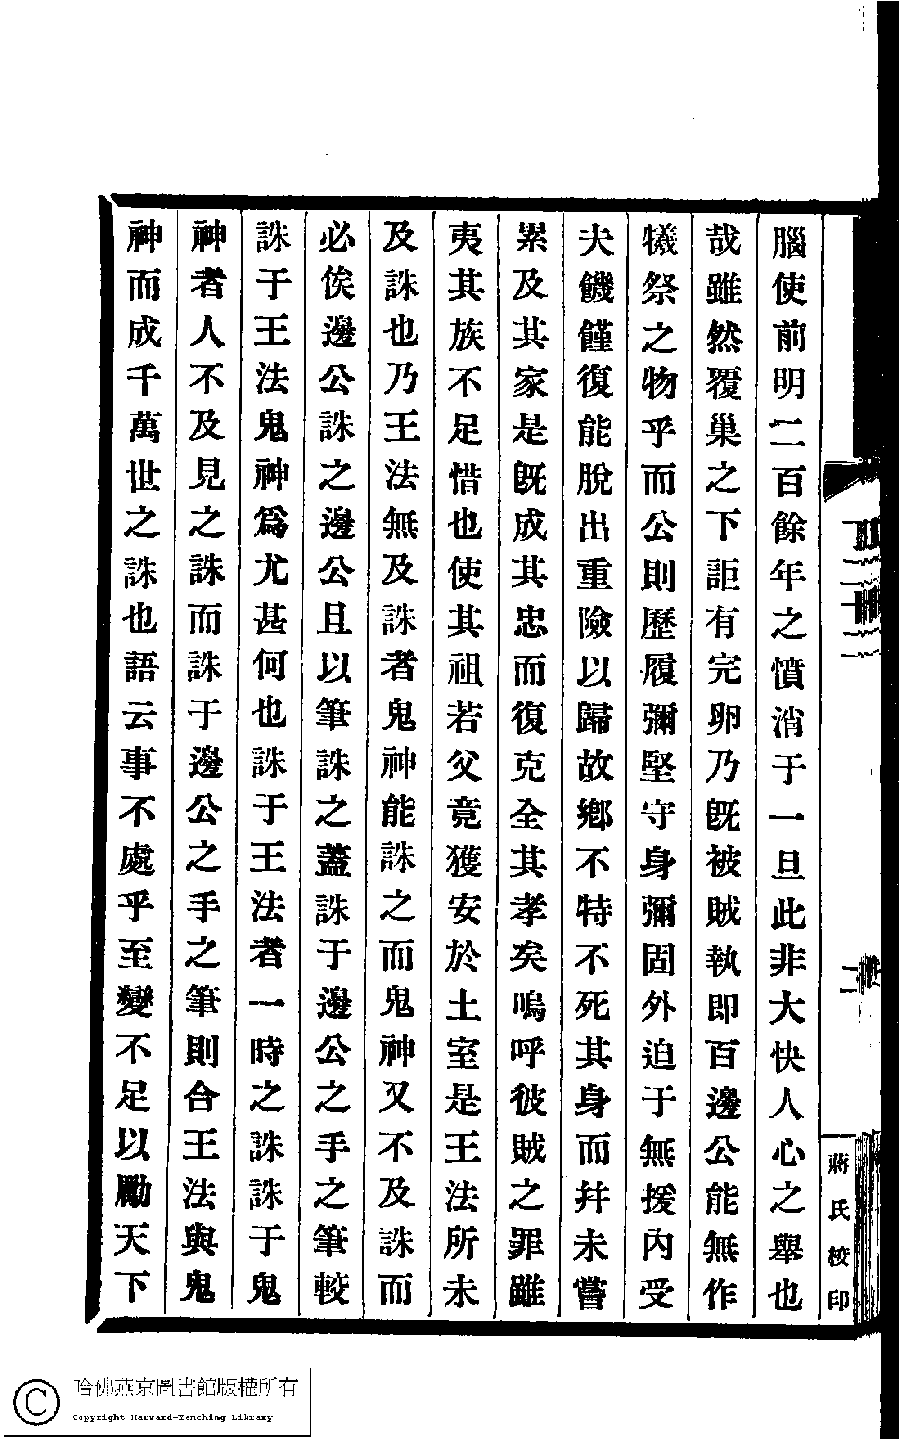 腦使前明二百餘年之憤消于一旦此非大快人心之舉也
哉雖然覆巢之下詎有完卵乃旣被賊執即百邊公能無作
犧祭之物乎而公則歷履彌堅守身彌固外迫于無援內受
夫饑饉復能脫出重險以歸故鄉不特不死其身而幷未嘗
累及其家是旣成其忠而復克全其孝矣嗚呼彼賊之罪雖
夷其族不足惜也使其祖若父竟獲安於土室是王法所未
及誅也乃王法無及誅者鬼神能誅之而鬼神又不及誅而
必俟邊公誅之邊公且以筆誅之蓋誅于邊公之手之筆較
誅于王法鬼神爲尤甚何也誅于王法者一時之誅誅于鬼
神者人不及見之誅而誅于邊公之手之筆則合王法與鬼
神而成千萬世之誅也語云事不處乎至變不足以勵天下
蔣氏校印
哈佛燕京圖書館版權所有
Copyright Harvard-Yenching Library